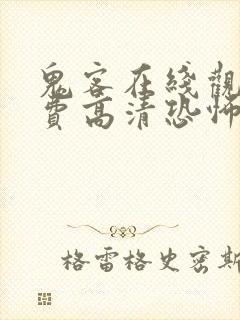 鬼客在綫觀
費高清恐怖
格雷格史密斯